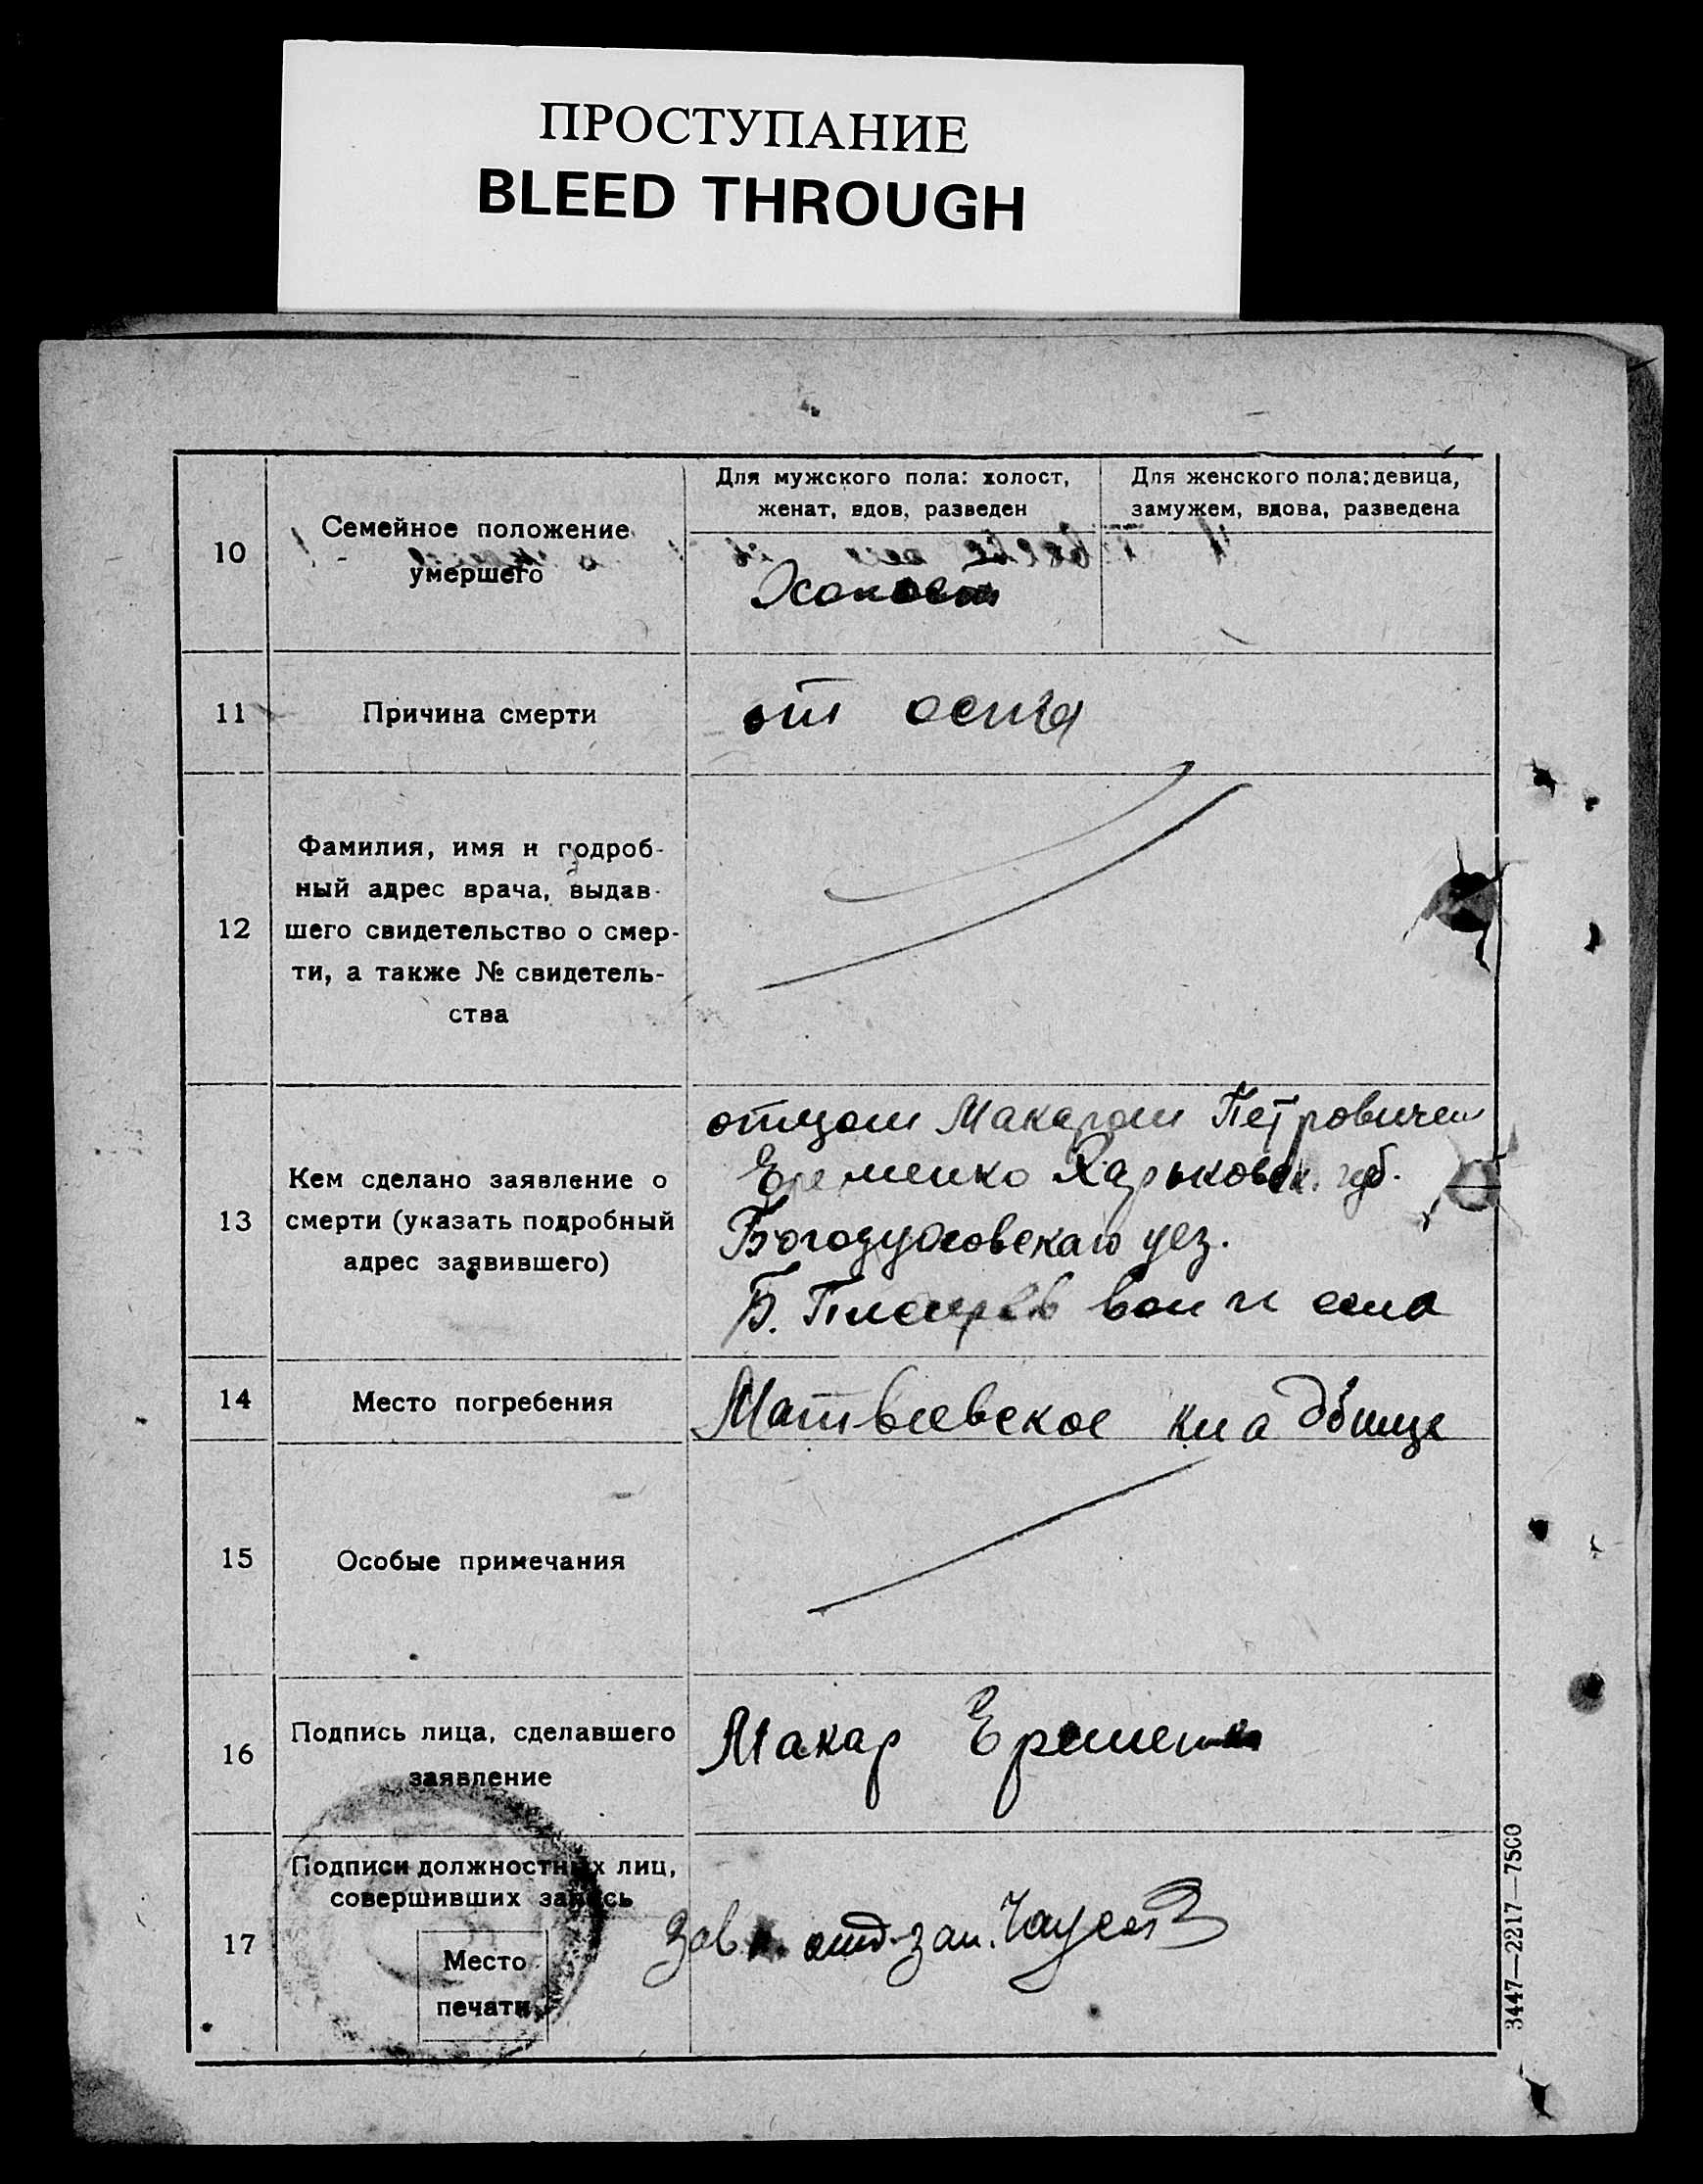 ПРОСТУПАНИЕ
BLEED THROUGH
Для мужского пола: холост,
женат, вдов, разведен
Для женского пола: девица,
замужем, вдова, разведена
10
Семейное положение
умершего
11
Причина смерти
от оспы
12
Фамилия, имя и подроб-
ный адрес врача, выдав-
шего свидетельство о смер-
ти, а также № свидетель-
ства
13
Кем сделано заявление о
смерти (указать подробный
адрес заявившего)
отцом Макаром Петровичем
Еременко Харьковск. губ.
Богодуховскаго уез.
Б. вол и села
14
Место погребения
Матвеевское кладбище
15
Особые примечания
16
Подпись лица, сделавшего
заявление
Макар Еременко
17
Подписи должностных лиц,
совершивших запись
Место
печати
Зав. отд. зап.
3447—2217—7500